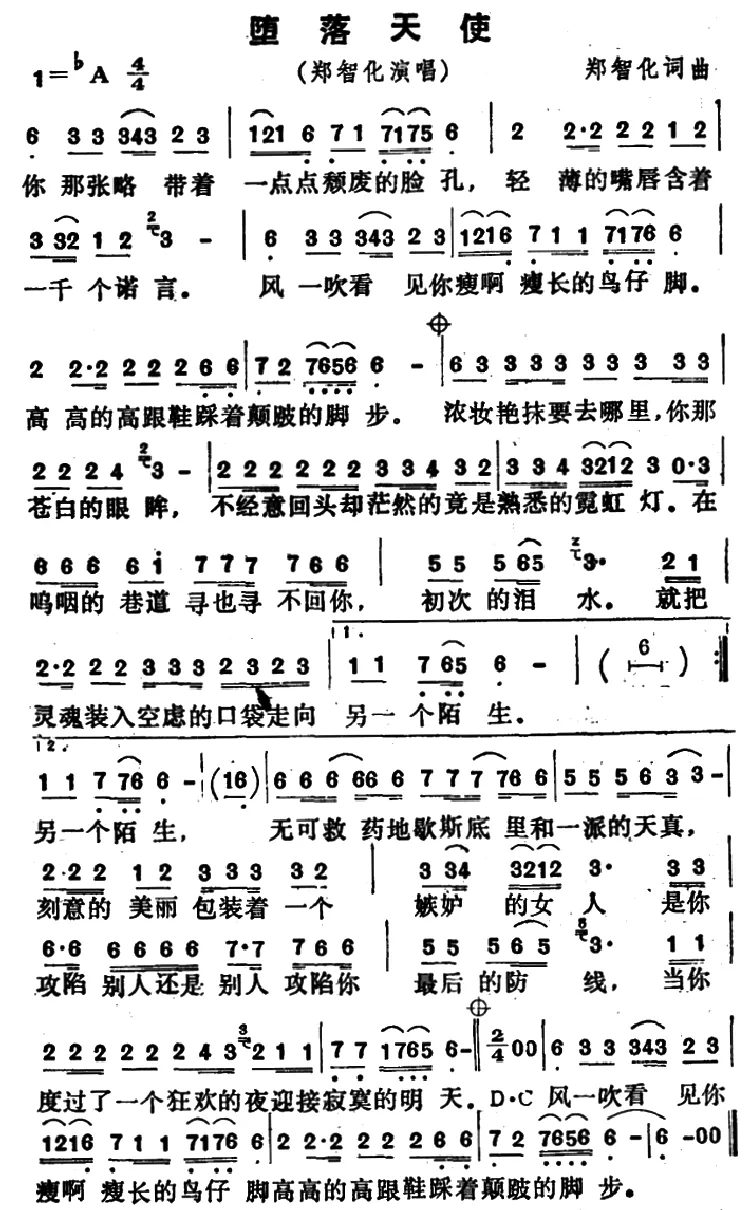 堕落天使
1=♭A 4/4 (郑智化演唱) 郑智化词曲
6 3 3 343 2 3 | 121 6 7 1 7175 6 | 2 2·2 2 2 1 2 |
你 那张略 带着 一点点颓废的脸 孔，轻 薄的嘴唇含着
3 32 1 2 3 - | 6 3 3 343 2 3 | 1216 7 1 1 7176 6 |
一千 个诺 言。 风 一吹看 见你瘦啊 瘦长的鸟仔 脚。
2 2·2 2 2 2 6 6 | 7 2 7656 6 - | 6 3 3 3 3 3 3 3 3 3 |
高 高的高跟鞋踩着颠跛的脚 步。 浓妆艳抹要去哪里，你那
2 2 2 4 3 - | 2 2 2 2 2 2 3 3 4 3 2 | 3 3 4 3212 3 0·3 |
苍白的眼 眸， 不经意回头却茫然的竟是熟悉的霓虹 灯。在
6 6 6 6 i 7 7 7 7 6 6 | 5 5 5 65 3· 2 1 |
呜咽的 巷道 寻也寻 不回你， 初次 的泪 水。 就把
2·2 2 2 3 3 3 2 3 2 3 | 1. 1 1 7 65 6 - | ( 6 ) :||
灵魂装入空虚的口袋走向 另一 个陌 生。
2. 1 1 7 76 6 - | (16) | 6 6 6 66 6 7 7 7 76 6 | 5 5 5 6 3 3 - |
另一个陌 生， 无可救 药地歇斯底 里和一派的天真，
2·2 2 1 2 3 3 3 3 2 | 3 34 3212 3· 3 3 |
刻意的 美丽 包装着 一个 嫉妒 的女 人 是你
6·6 6 6 6 6 7·7 7 6 6 | 5 5 5 6 5 3· 1 1 |
攻陷 别人还是 别人 攻陷你 最后 的防 线，当你
2 2 2 2 2 2 4 3 2 1 1 | 7 7 1765 6 - || 2/4 0 0 | 6 3 3 343 2 3 |
度过了一个狂欢的夜迎接寂寞的明 天。D·C 风一吹看 见你
1216 7 1 1 7176 6 | 2 2·2 2 2 2 6 6 | 7 2 7656 6 - | 6 - 0 0 ||
瘦啊 瘦长的鸟仔 脚高高的高跟鞋踩着颠跛的脚 步。